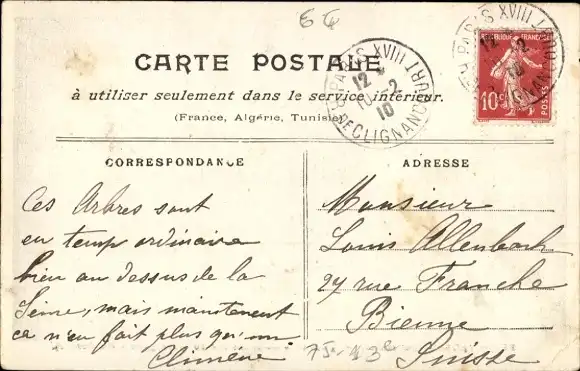 6
CARTE POSTALE
à utiliser seulement dans le service intérieur.
(France, Algérie, Tunisie)
PARIS XVIII
12
10 - 2
10
R. DE CLIGNANCOURT
RÉPUBLIQUE FRANÇAISE
10c
POSTES
PARIS XVIII
12
2
10
CORRESPONDANCE
Ces Arbres sont
en temp ordinaire
bien au dessus de la
Seine, mais maintenent
ca n'en fait plus qu'un
Climène
ADRESSE
Monsieur
Louis Allenbach
27 rue Franche
Bienne
Suisse
75 - 13e